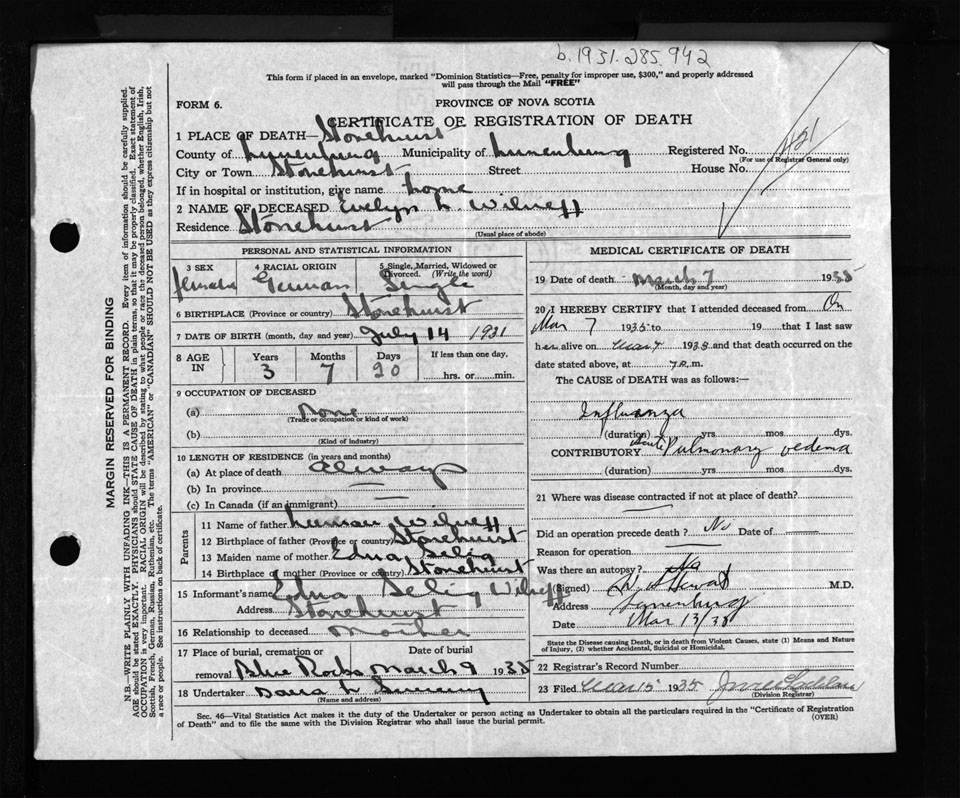 b. 1931. 285. 942
This form if placed in an envelope, marked "Dominion Statistics—Free, penalty for improper use, $300," and properly addressed
will pass through the Mail "FREE"
FORM 6.
PROVINCE OF NOVA SCOTIA
CERTIFICATE OF REGISTRATION OF DEATH
1 PLACE OF DEATH— Stonehurst
County of Lunenburg Municipality of Lunenburg Registered No. 421
(For use of Registrar General only)
City or Town Stonehurst Street House No.
If in hospital or institution, give name home
2 NAME OF DECEASED Evelyn L. Wilneff
Residence Stonehurst
(Usual place of abode)
PERSONAL AND STATISTICAL INFORMATION
3 SEX 4 RACIAL ORIGIN 5 Single, Married, Widowed or Divorced. (Write the word)
Female German Single
6 BIRTHPLACE (Province or country) Stonehurst
7 DATE OF BIRTH (month, day and year) July 14 1931
8 AGE IN Years Months Days If less than one day.
3 7 20 hrs. or min.
9 OCCUPATION OF DECEASED
(a) None
(Trade or occupation or kind of work)
(b)
(Kind of industry)
10 LENGTH OF RESIDENCE (in years and months)
(a) At place of death always
(b) In province
(c) In Canada (if an immigrant)
Parents
11 Name of father Wilneff
12 Birthplace of father (Province or country) Stonehurst
13 Maiden name of mother Edna Selig
14 Birthplace of mother (Province or country) Stonehurst
15 Informant's name Edna Selig Wilneff
Address Stonehurst
16 Relationship to deceased mother
17 Place of burial, cremation or removal Date of burial
Blue Rocks March 9 1935
18 Undertaker
(Name and address)
MEDICAL CERTIFICATE OF DEATH
19 Date of death March 7 1935
(Month, day and year)
20 I HEREBY CERTIFY that I attended deceased from On
Mar 7 1935 to 19 that I last saw
her alive on Mar 7 1935 and that death occurred on the
date stated above, at 7 P. m.
The CAUSE of DEATH was as follows:—
Influenza
(duration) yrs mos. dys.
CONTRIBUTORY Acute Pulmonary oedema
(duration) yrs. mos. dys.
21 Where was disease contracted if not at place of death?
Did an operation precede death? No Date of
Reason for operation
Was there an autopsy? No
(Signed) M.D.
Address Lunenburg
Date Mar 13/35
State the Disease causing Death, or in death from Violent Causes, state (1) Means and Nature
of Injury, (2) whether Accidental, Suicidal or Homicidal.
22 Registrar's Record Number
23 Filed Mar 15 1935
(Division Registrar)
Sec. 46—Vital Statistics Act makes it the duty of the Undertaker or person acting as Undertaker to obtain all the particulars required in the "Certificate of Registration
of Death" and to file the same with the Division Registrar who shall issue the burial permit.
(OVER)
MARGIN RESERVED FOR BINDING
N.B.—WRITE PLAINLY WITH UNFADING INK—THIS IS A PERMANENT RECORD. Every item of information should be carefully supplied.
AGE should be stated EXACTLY. PHYSICIANS should STATE CAUSE OF DEATH in plain terms, so that it may be properly classified. Exact statement of
OCCUPATION is very important. RACIAL ORIGIN will be described by stating to what people or race the deceased person belonged, whether English, Irish,
Scottish, French, German, Russian, Ruthenian, etc. The terms "AMERICAN" or "CANADIAN" SHOULD NOT BE USED as they express citizenship but not
a race or people. See instructions on back of certificate.